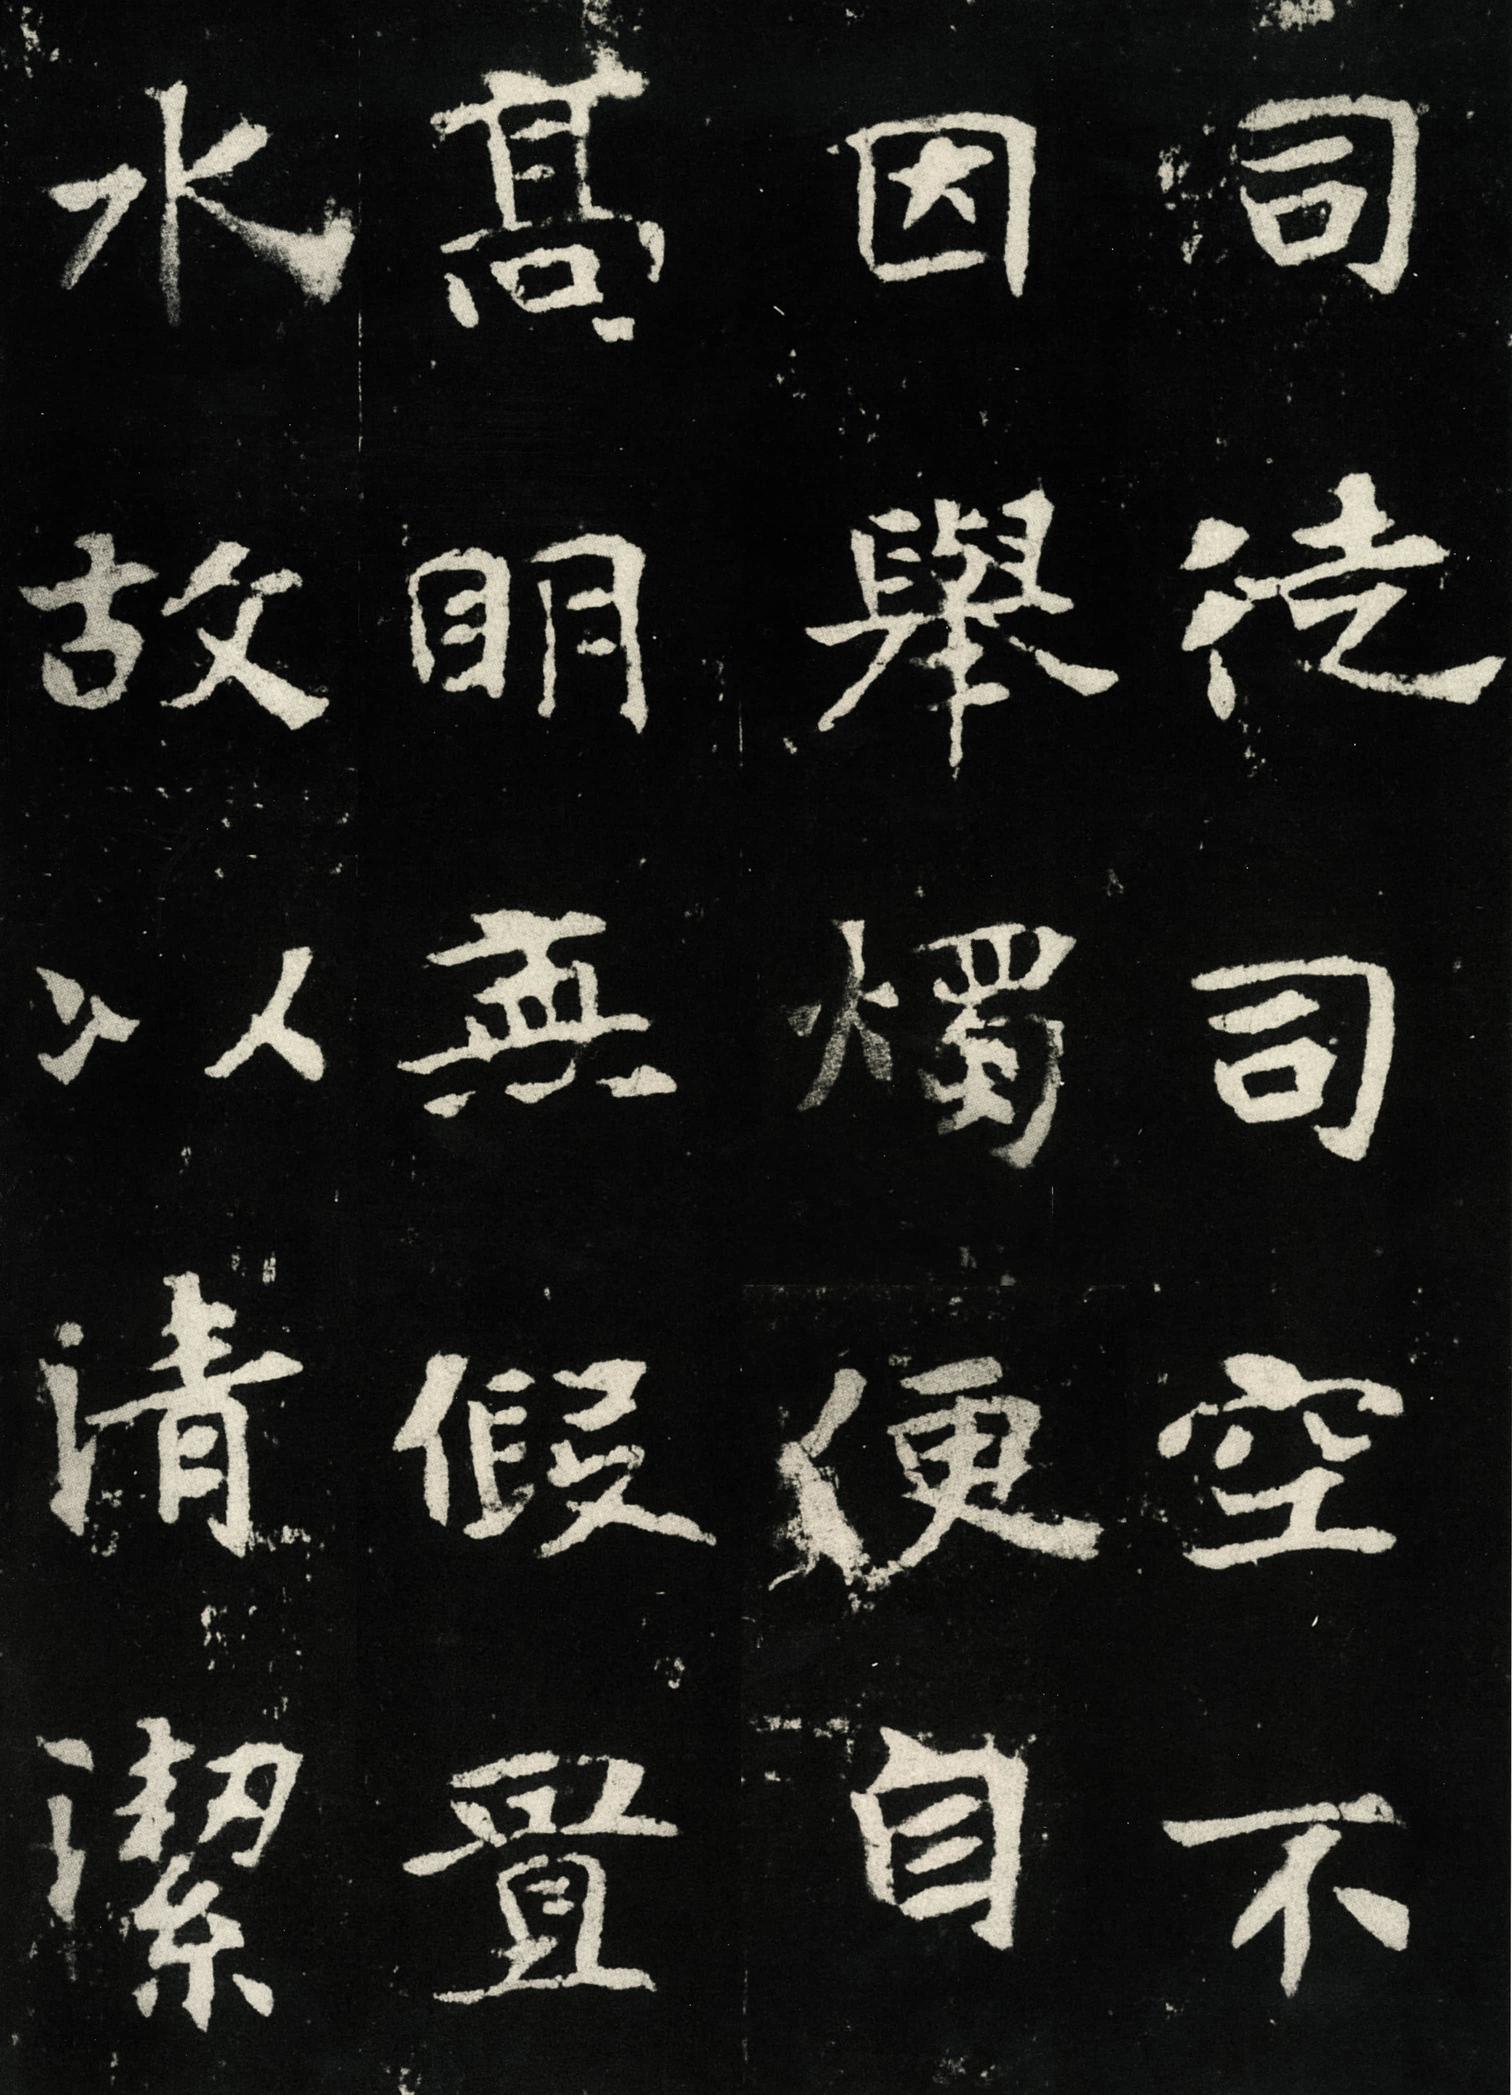 司徒司空不
因舉燭便自
髙明無假置
水故以清潔